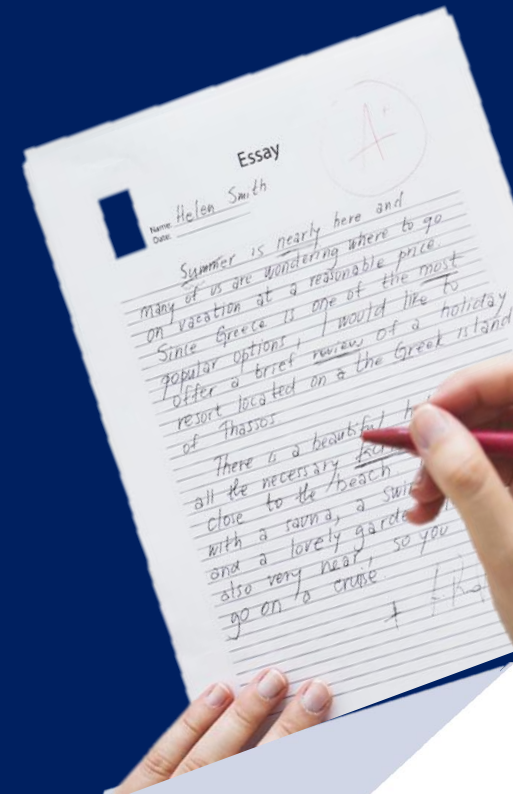 Essay
A+
Name: Helen Smith
Date:
Summer is nearly here and
many of us are wondering where to go
on vacation at a reasonable price.
Since Greece is one of the most
popular options, I would like to
offer a brief review of a holiday
resort located on a the Greek island
of Thassos
There is a beautiful
all the necessary
close to the beach.
with a sauna, a
and a lovely
also very near, so you
go on a cruise.